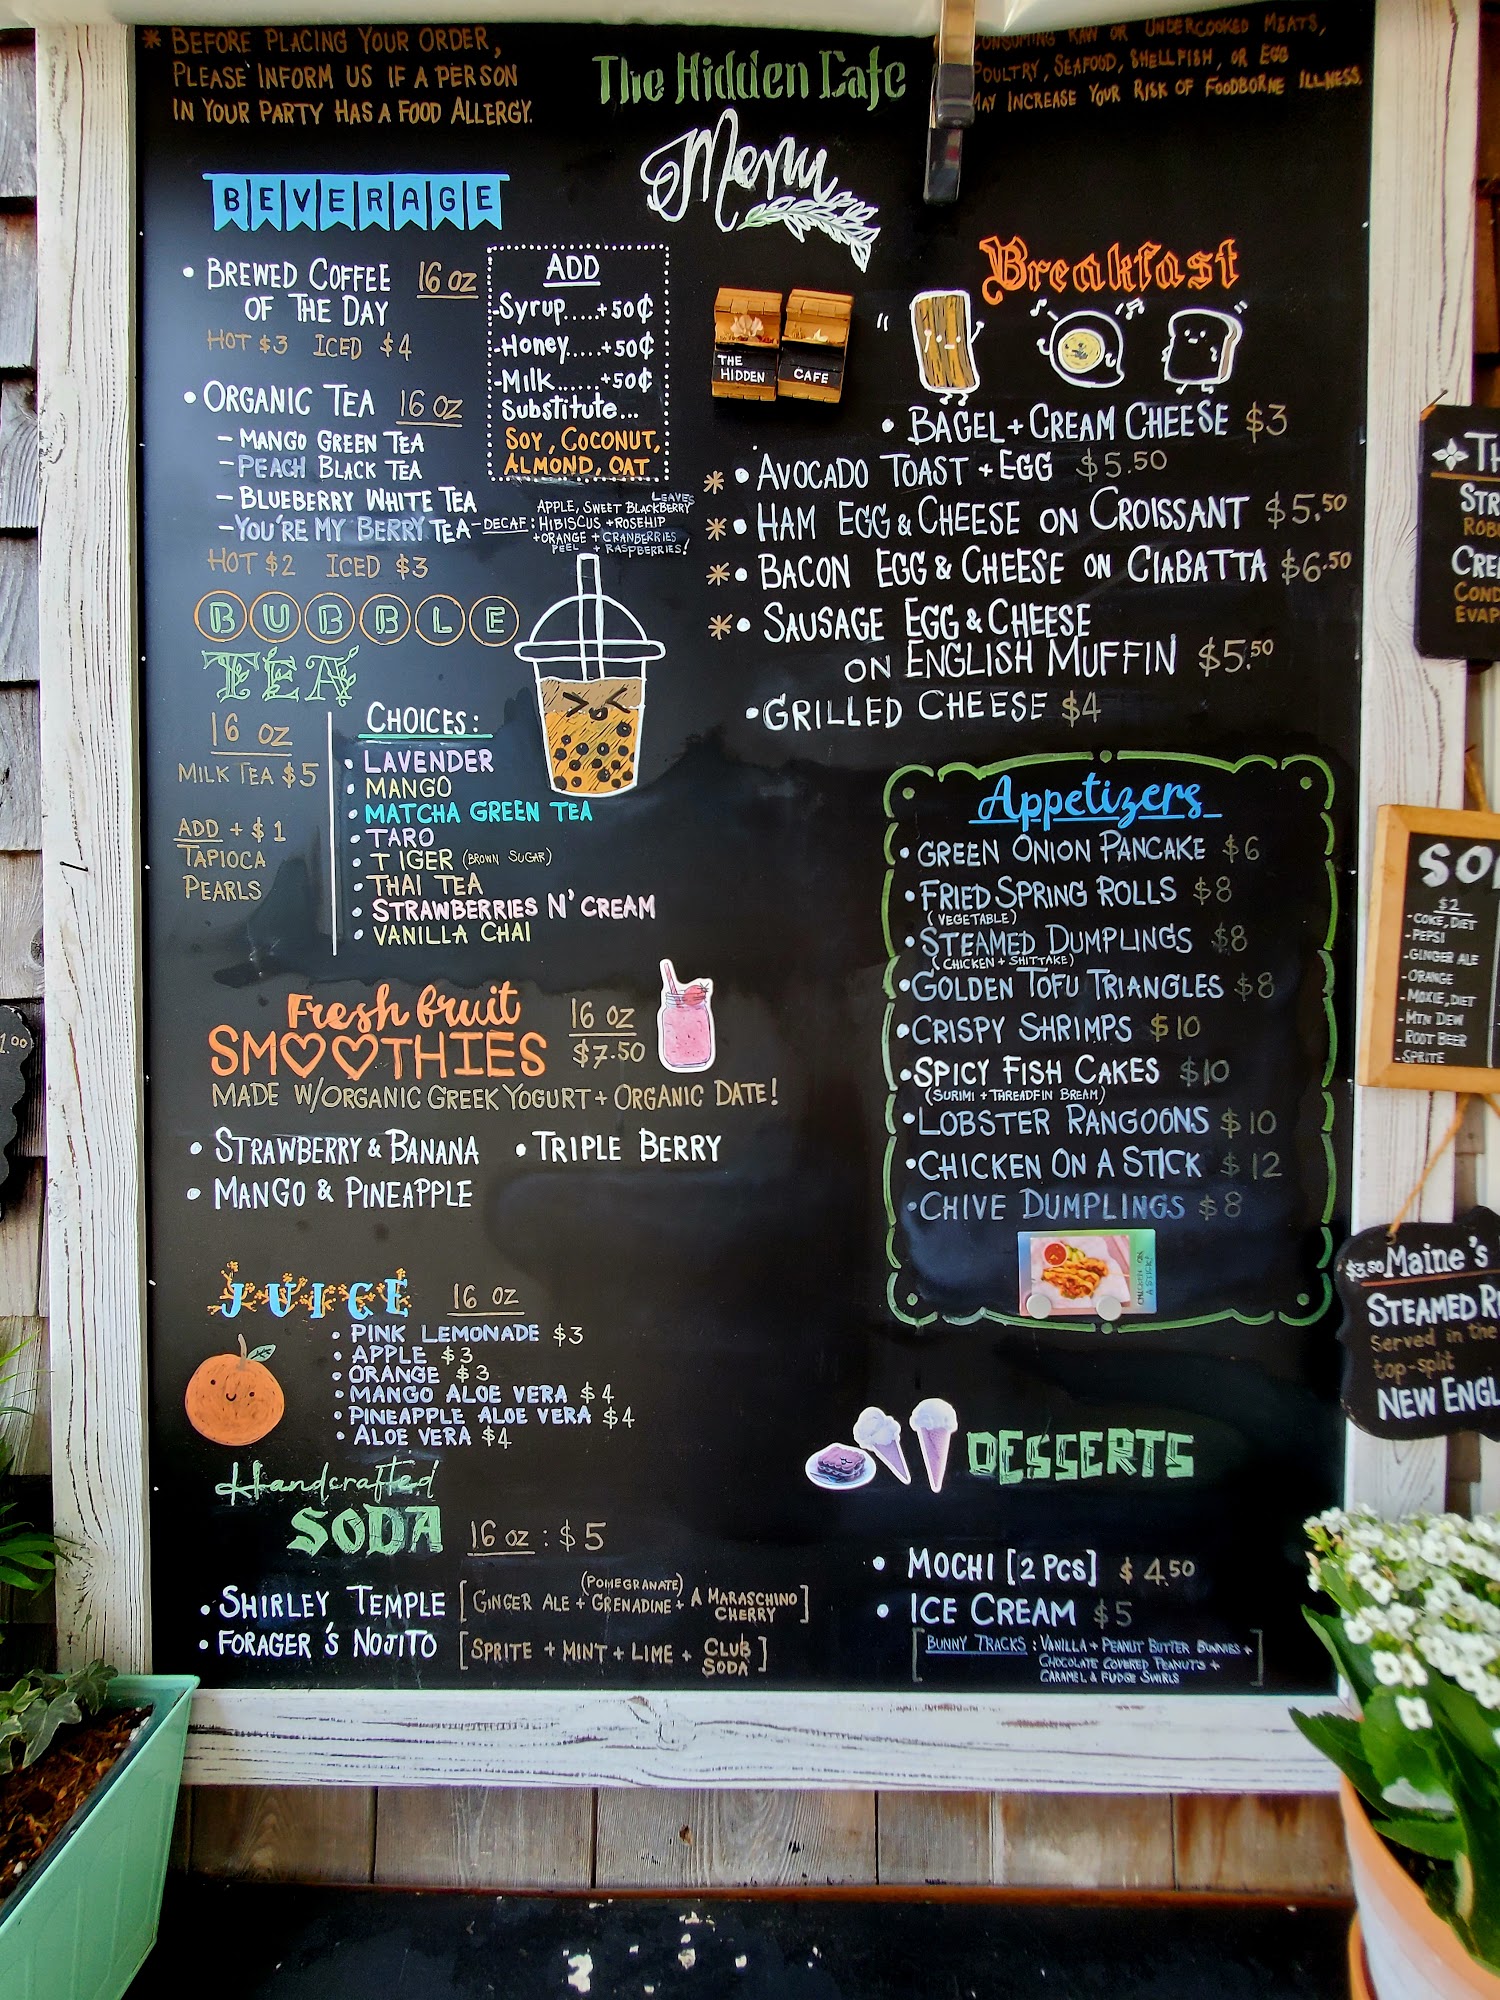 * BEFORE PLACING YOUR ORDER,
PLEASE INFORM US IF A PERSON
IN YOUR PARTY HAS A FOOD ALLERGY.
The Hidden Cafe
Menu
CONSUMING RAW OR UNDERCOOKED MEATS,
POULTRY, SEAFOOD, SHELLFISH, OR EGG
MAY INCREASE YOUR RISK OF FOODBORNE ILLNESS.
BEVERAGE
• BREWED COFFEE 16 OZ
OF THE DAY
HOT $3 ICED $4
ADD
-Syrup.....+50¢
-Honey.....+50¢
-Milk......+50¢
Substitute...
SOY, COCONUT,
ALMOND, OAT
• ORGANIC TEA 16 OZ
- MANGO GREEN TEA
- PEACH BLACK TEA
- BLUEBERRY WHITE TEA
- YOU'RE MY BERRY TEA - DECAF:
APPLE, SWEET BLACKBERRY LEAVES
HIBISCUS + ROSEHIP
+ORANGE PEEL + CRANBERRIES
+ RASPBERRIES!
HOT $2 ICED $3
BUBBLE
TEA
16 OZ
MILK TEA $5
ADD + $1
TAPIOCA
PEARLS
CHOICES:
• LAVENDER
• MANGO
• MATCHA GREEN TEA
• TARO
• TIGER (BROWN SUGAR)
• THAI TEA
• STRAWBERRIES N' CREAM
• VANILLA CHAI
Fresh fruit
SMOOTHIES
16 OZ
$7.50
MADE W/ORGANIC GREEK YOGURT + ORGANIC DATE!
• STRAWBERRY & BANANA • TRIPLE BERRY
• MANGO & PINEAPPLE
JUICE 16 OZ
• PINK LEMONADE $3
• APPLE $3
• ORANGE $3
• MANGO ALOE VERA $4
• PINEAPPLE ALOE VERA $4
• ALOE VERA $4
Handcrafted
SODA 16 OZ : $5
• SHIRLEY TEMPLE [GINGER ALE + (POMEGRANATE) GRENADINE + A MARASCHINO CHERRY]
• FORAGER'S NOJITO [SPRITE + MINT + LIME + CLUB SODA]
THE HIDDEN
CAFE
Breakfast
• BAGEL + CREAM CHEESE $3
* • AVOCADO TOAST + EGG $5.50
* • HAM EGG & CHEESE ON CROISSANT $5.50
* • BACON EGG & CHEESE ON CIABATTA $6.50
* • SAUSAGE EGG & CHEESE
ON ENGLISH MUFFIN $5.50
• GRILLED CHEESE $4
Appetizers
• GREEN ONION PANCAKE $6
• FRIED SPRING ROLLS $8
(VEGETABLE)
• STEAMED DUMPLINGS $8
(CHICKEN + SHITTAKE)
• GOLDEN TOFU TRIANGLES $8
• CRISPY SHRIMPS $10
• SPICY FISH CAKES $10
(SURIMI + THREADFIN BREAM)
• LOBSTER RANGOONS $10
• CHICKEN ON A STICK $12
• CHIVE DUMPLINGS $8
CHICKEN ON A STICK!
DESSERTS
• MOCHI [2 PCS] $4.50
• ICE CREAM $5
[BUNNY TRACKS: VANILLA + PEANUT BUTTER BUNNIES +
CHOCOLATE COVERED PEANUTS +
CARAMEL & FUDGE SWIRLS]
$2
- COKE, DIET
- PEPSI
- GINGER ALE
- ORANGE
- MOXIE, DIET
- MTN DEW
- ROOT BEER
- SPRITE
$3.50 Maine's
STEAMED
Served in the
top-split
NEW